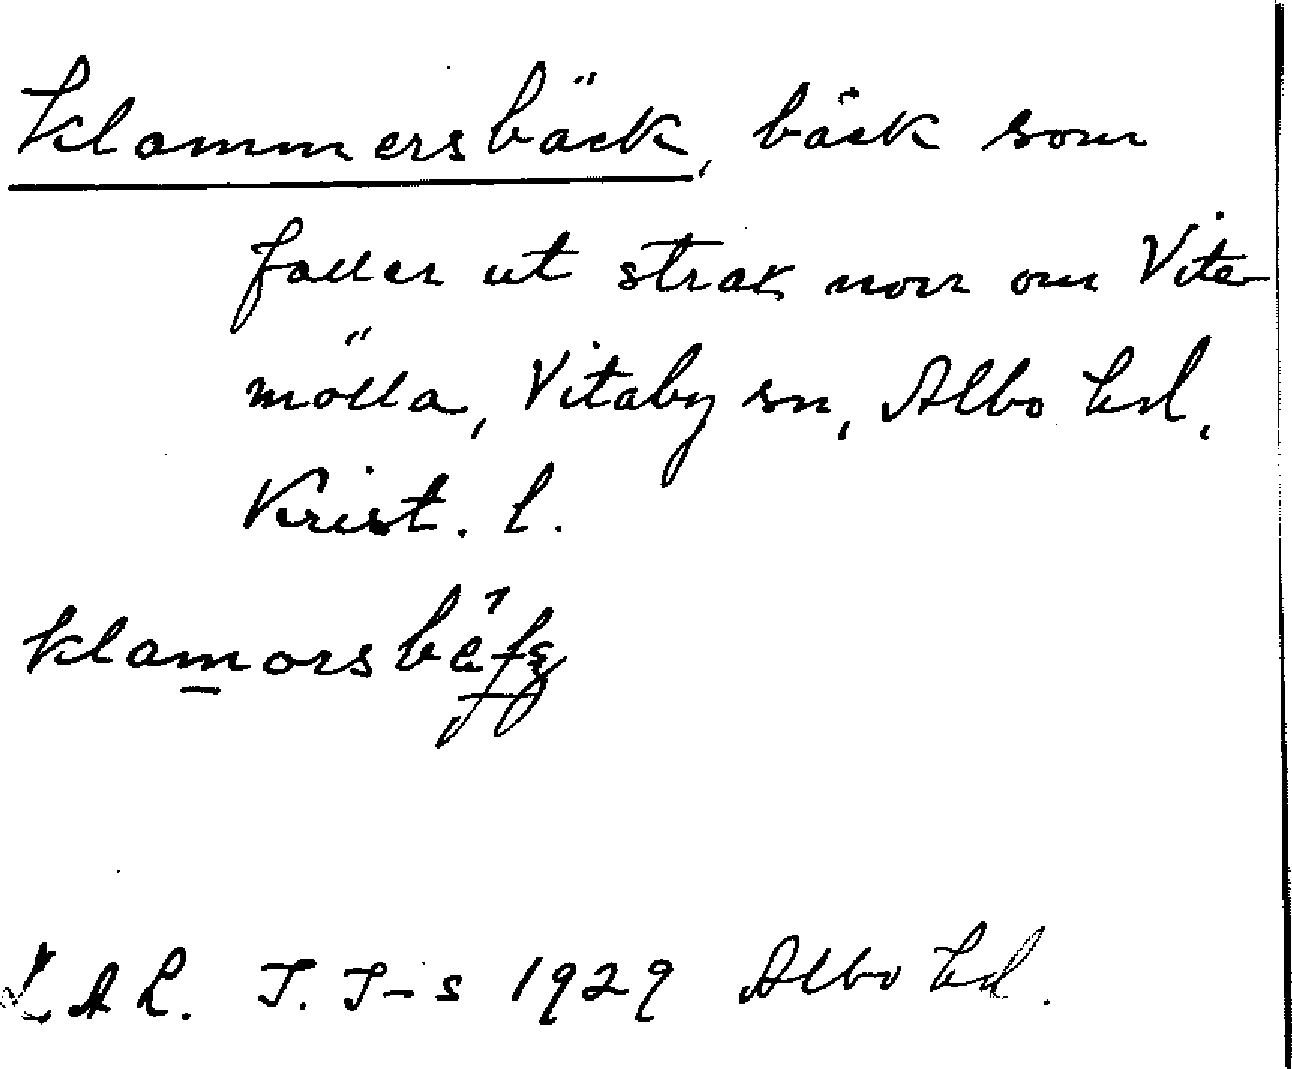 Klammersbäck, bäck som
faller ut strax norr om Vite-
mölla, Vitaby sn, Albo hd,
Krist. l.
Albo hd.
L A L. I. I-s 1929 Albo hd.